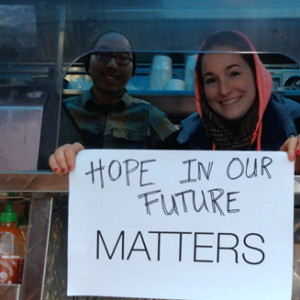 HOPE IN OUR
FUTURE
MATTERS